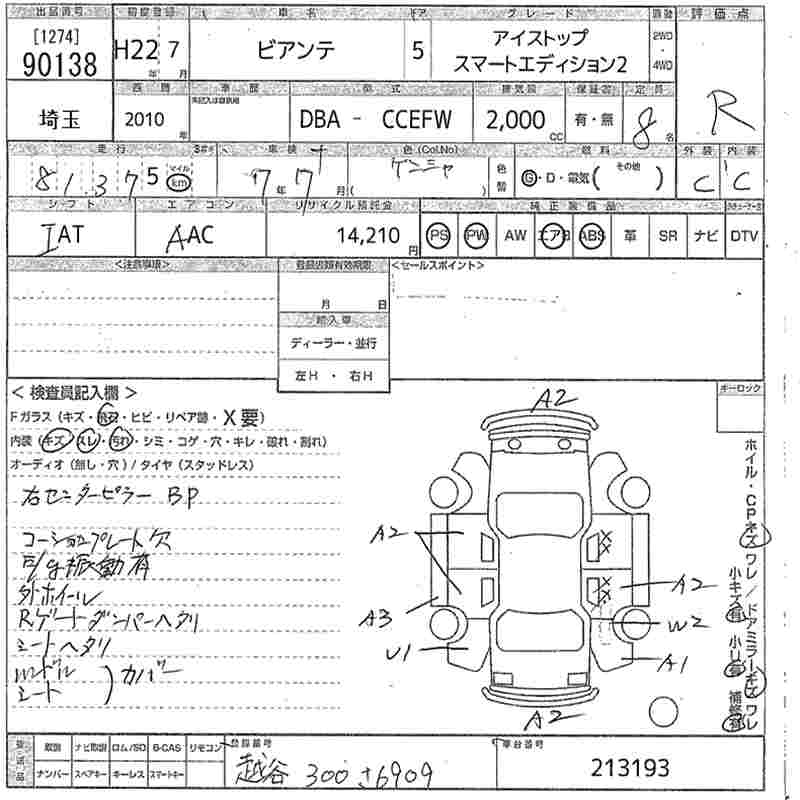 出品番号 初度登録 車名 ドア グレード 駆動 評価点
[1274] 90138 H22年 7月 ビアンテ 5 アイストップ スマートエディション2 2WD・4WD R
西暦 車歴 型式 排気量 保証書 定員
埼玉 2010年 DBA - CCEFW 2,000CC 有・無 8名
走行 車検 色(Col.No) 色替 燃料 外装 内装
81375 マイル km 7年7月 ( ) G・D・電気( その他 ) C C
シフト エアコン リサイクル預託金 純正装備品
IAT AAC 14,210円 PS PW AW エアB ABS 革 SR ナビ DTV
<注意事項> 登録書類有効期限 <セールスポイント>
月 日
輸入車
ディーラー・並行
左H ・ 右H
<検査員記入欄> キーロック
Fガラス(キズ・飛石・ヒビ・リペア跡・X要)
内装(キズ・スレ・汚れ・シミ・コゲ・穴・キレ・破れ・割れ)
オーディオ(無し・穴)/タイヤ(スタッドレス)
右センターピラー BP
コーションプレート欠
E/g振動有
外ホイール
Rゲートダンパーヘタリ
シートヘタリ
ハンドル
シート ) カバー
A2
A2
A3
U1
A2
W2
A1
A2
ホイル・CPキズワレ/ドアミラーキズワレ
小キズ有 小凹有 補修有
返送品 取説 ナビ取説 ロム/SD B-CAS リモコン 登録番号 車台番号
ナンバー スペアキー キーレス スマートキー 越谷 300 さ6909 213193